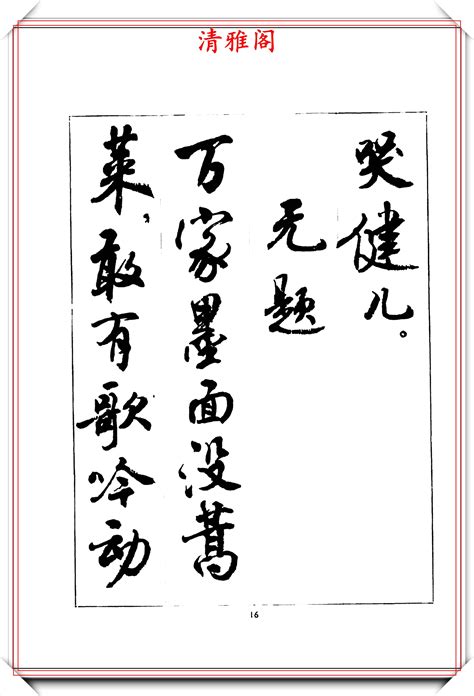 清雅阁
哭健儿。
无题
万家墨面没蒿
莱，敢有歌吟动
16